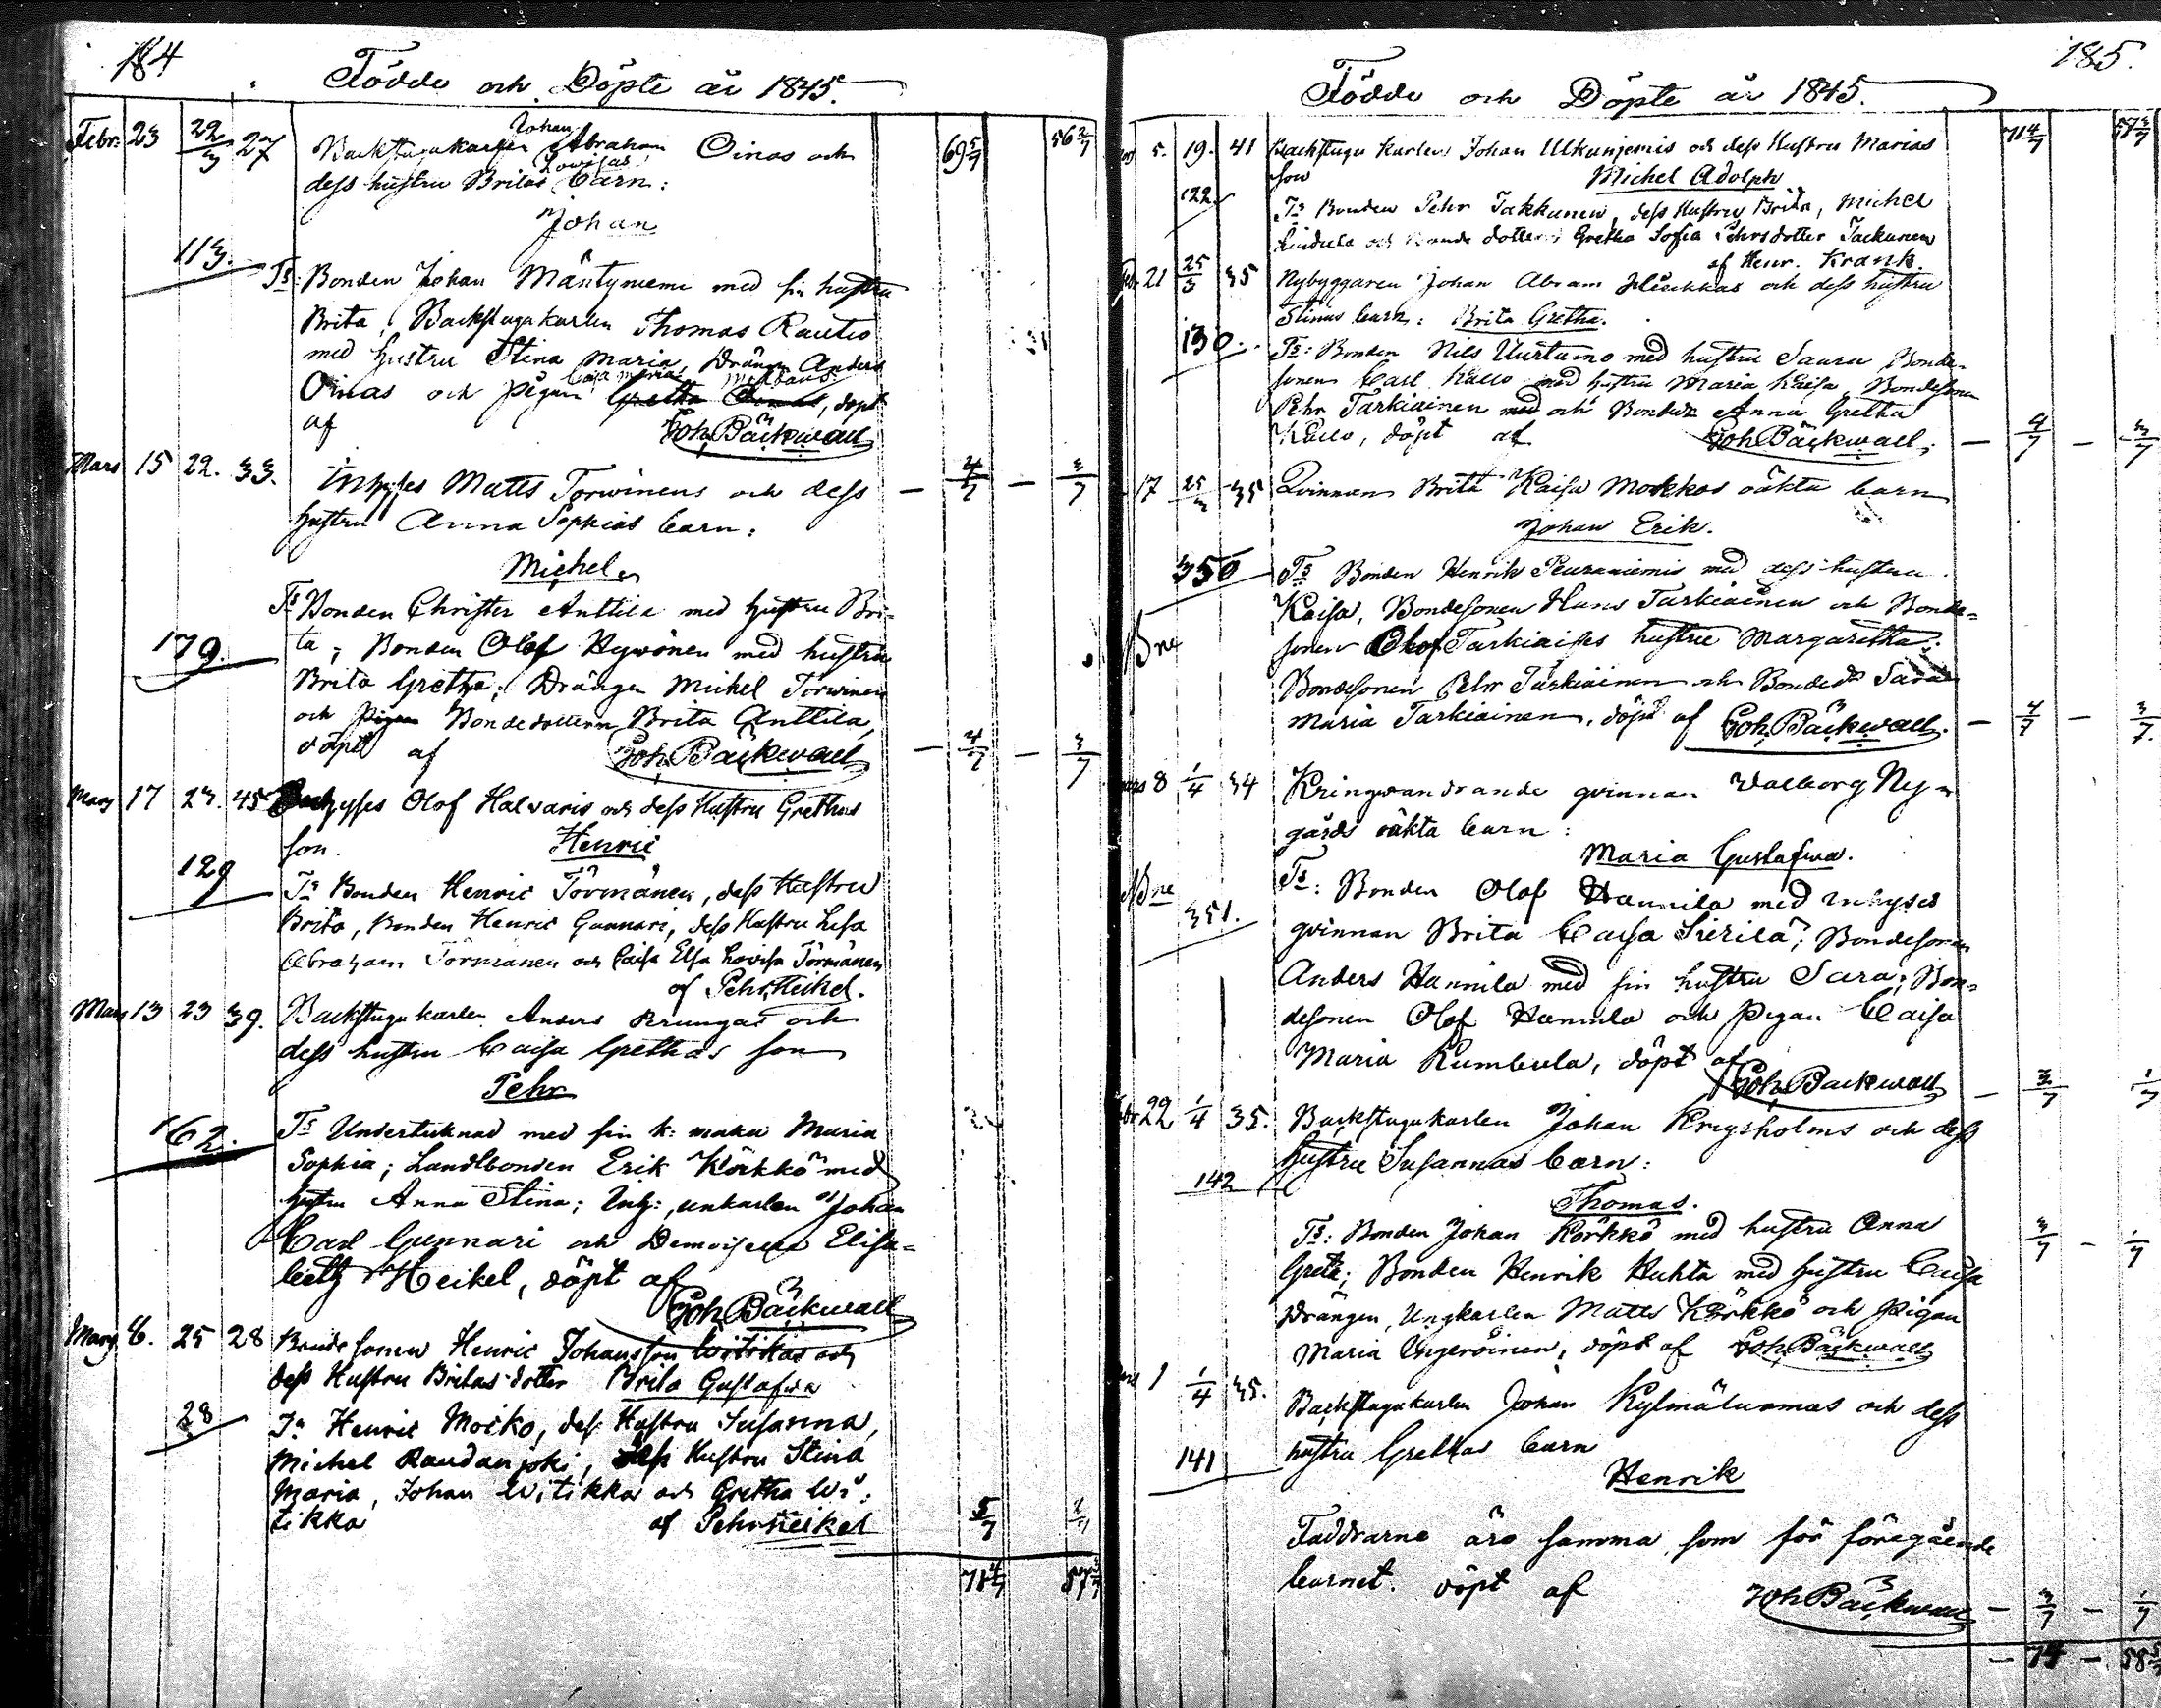 184
Födde och Döpte år 1845.
Febr. 23 22/3 27 Backstugukarlen Johan Abraham Oinas och 69 5/7 56 2/7
dess hustru Britas Lowisas barn:
Johan
113.
Ts: Bonden Johan Mäntyniemi med sin hustru
Brita, Backstugukarlen Thomas Rautio
med hustru Stina Maria, Drängen Anders
Oinas och pigan Caisa Maria
Gretha, döpt
af Joh. Bäckwall
Mars 15 22. 33. Inhyses Matts Torwinens och dess — 4/7 — 3/7
hustru Anna Sophias barn:
Michel
Ts Bonden Christer Anttila med hustru Bri-
179. ta, Bonden Olof Hyvönen med hustru
Brita Gretha; Drängen Michel Torwinen
och Bondedottern Brita Anttila,
döpt af Joh. Bäckwall — 4/7 — 3/7
Mars 17 23. 45 Inhyses Olof Halvaris och dess Hustru Grethas
son. Henric
129
Ts Bonden Henric Törmänen, dess Hustru
Brita, Bonden Henric Gunnari, dess Hustru Lisa
Abraham Törmänen och Caisa Elsa Lovisa Törmänen
af Pehr Heikel.
Mars 13 23 39. Backstugukarlen Anders Perungas och
dess hustru Caisa Grethas son
Pehr
162.
Ts Undertecknad med sin k: maka Maria
Sophia; Landbonden Erik Körkkö med
hustru Anna Stina; Inh:, unkarlen Johan
Carl Gunnari och Demoiselle Elisa-
beth Heikel, döpt af
Joh Bäckwall
Mars 6. 25 28 Bondesonen Henric Johansson Witikas och
dess Hustru Britas dotter Brita Gustafva
28
Ts Henric Moiko, dess Hustru Susanna,
Michel Raudanjoki, dess Hustru Stina
Maria, Johan Witikka och Gretha Wi-
tikka af Pehr Heikel 5/7 2/7
71 4/7 57 3/7
185.
Födde och Döpte år 1845.
5. 19. 41 Backstugu Karlen Johan Ulkuniemis och dess Hustru Marias 71 4/7 57 3/7
son Michel Adolph
122
Ts Bonden Pehr Takkunen, dess Hustru Brita, Michel
och Bonde dottern Gretha Sofia Pehrsdotter Tackunen
af Henr. Krank.
21 25/3 35 Nybyggaren Johan Abram och dess hustru
Stinas barn: Brita Gretha.
130.
Ts: Bonden Nils Uurtamo med hustru Saara Bonde-
sonen Carl Kallo med hustru Maria Kaisa, Bondesonen
Pehr Tarkiainen och Anna Gretha
Kallo, döpt af Joh Bäckwall. — 4/7 — 3/7
17 25/3 35 Qvinnan Brita Kaisa Mokkos oäkta barn
Johan Erik.
350
Ts Bonden Henrik Peuraniemis med dess hustru
Kaisa, Bondesonen Hans Tarkiainen och Bonde-
NB ne
sonen Olof Tarkiaises hustru Margaretha;
Bondesonen Pehr Tarkiainen och Bonded. Sara
Maria Tarkiainen, döpt af Joh. Bäckwall. — 4/7 — 3/7.
8 1/4 34 Kringvandrande qvinnan Valborg Ny-
gårds oäkta barn:
Maria Gustafwa.
NB ne
351.
Ts: Bonden Olof Hannila med inhyses
qvinnan Brita Caisa Sierilä; Bondesonen
Anders Hannila med sin hustru Sara; Bon-
desonen Olof Hannila och Pigan Caisa
Maria Kumbula, döpt af
Joh Bäckwall — 3/7 1/7
22 1/4 35. Backstugukarlen Johan Krigsholms och dess
hustru Susannas barn:
142
Thomas.
Ts: Bonden Johan Körkkö med hustru Anna 3/7 — 1/7
Greta; Bonden Henrik Kuhta med hustru Caisa
Drängen, Ungkarlen Matts Körkkö och Pigan
Maria Ungeroinen, döpt af Joh. Bäckwall
1 1/4 35. Backstugukarlen Johan Kylmäluomas och dess
hustru Grethas barn
141
Henrik
Faddrarne äro samma som för föregående
barnet. döpt af Joh Bäckwall — 3/7 — 1/7
— 74 — 58 5/7